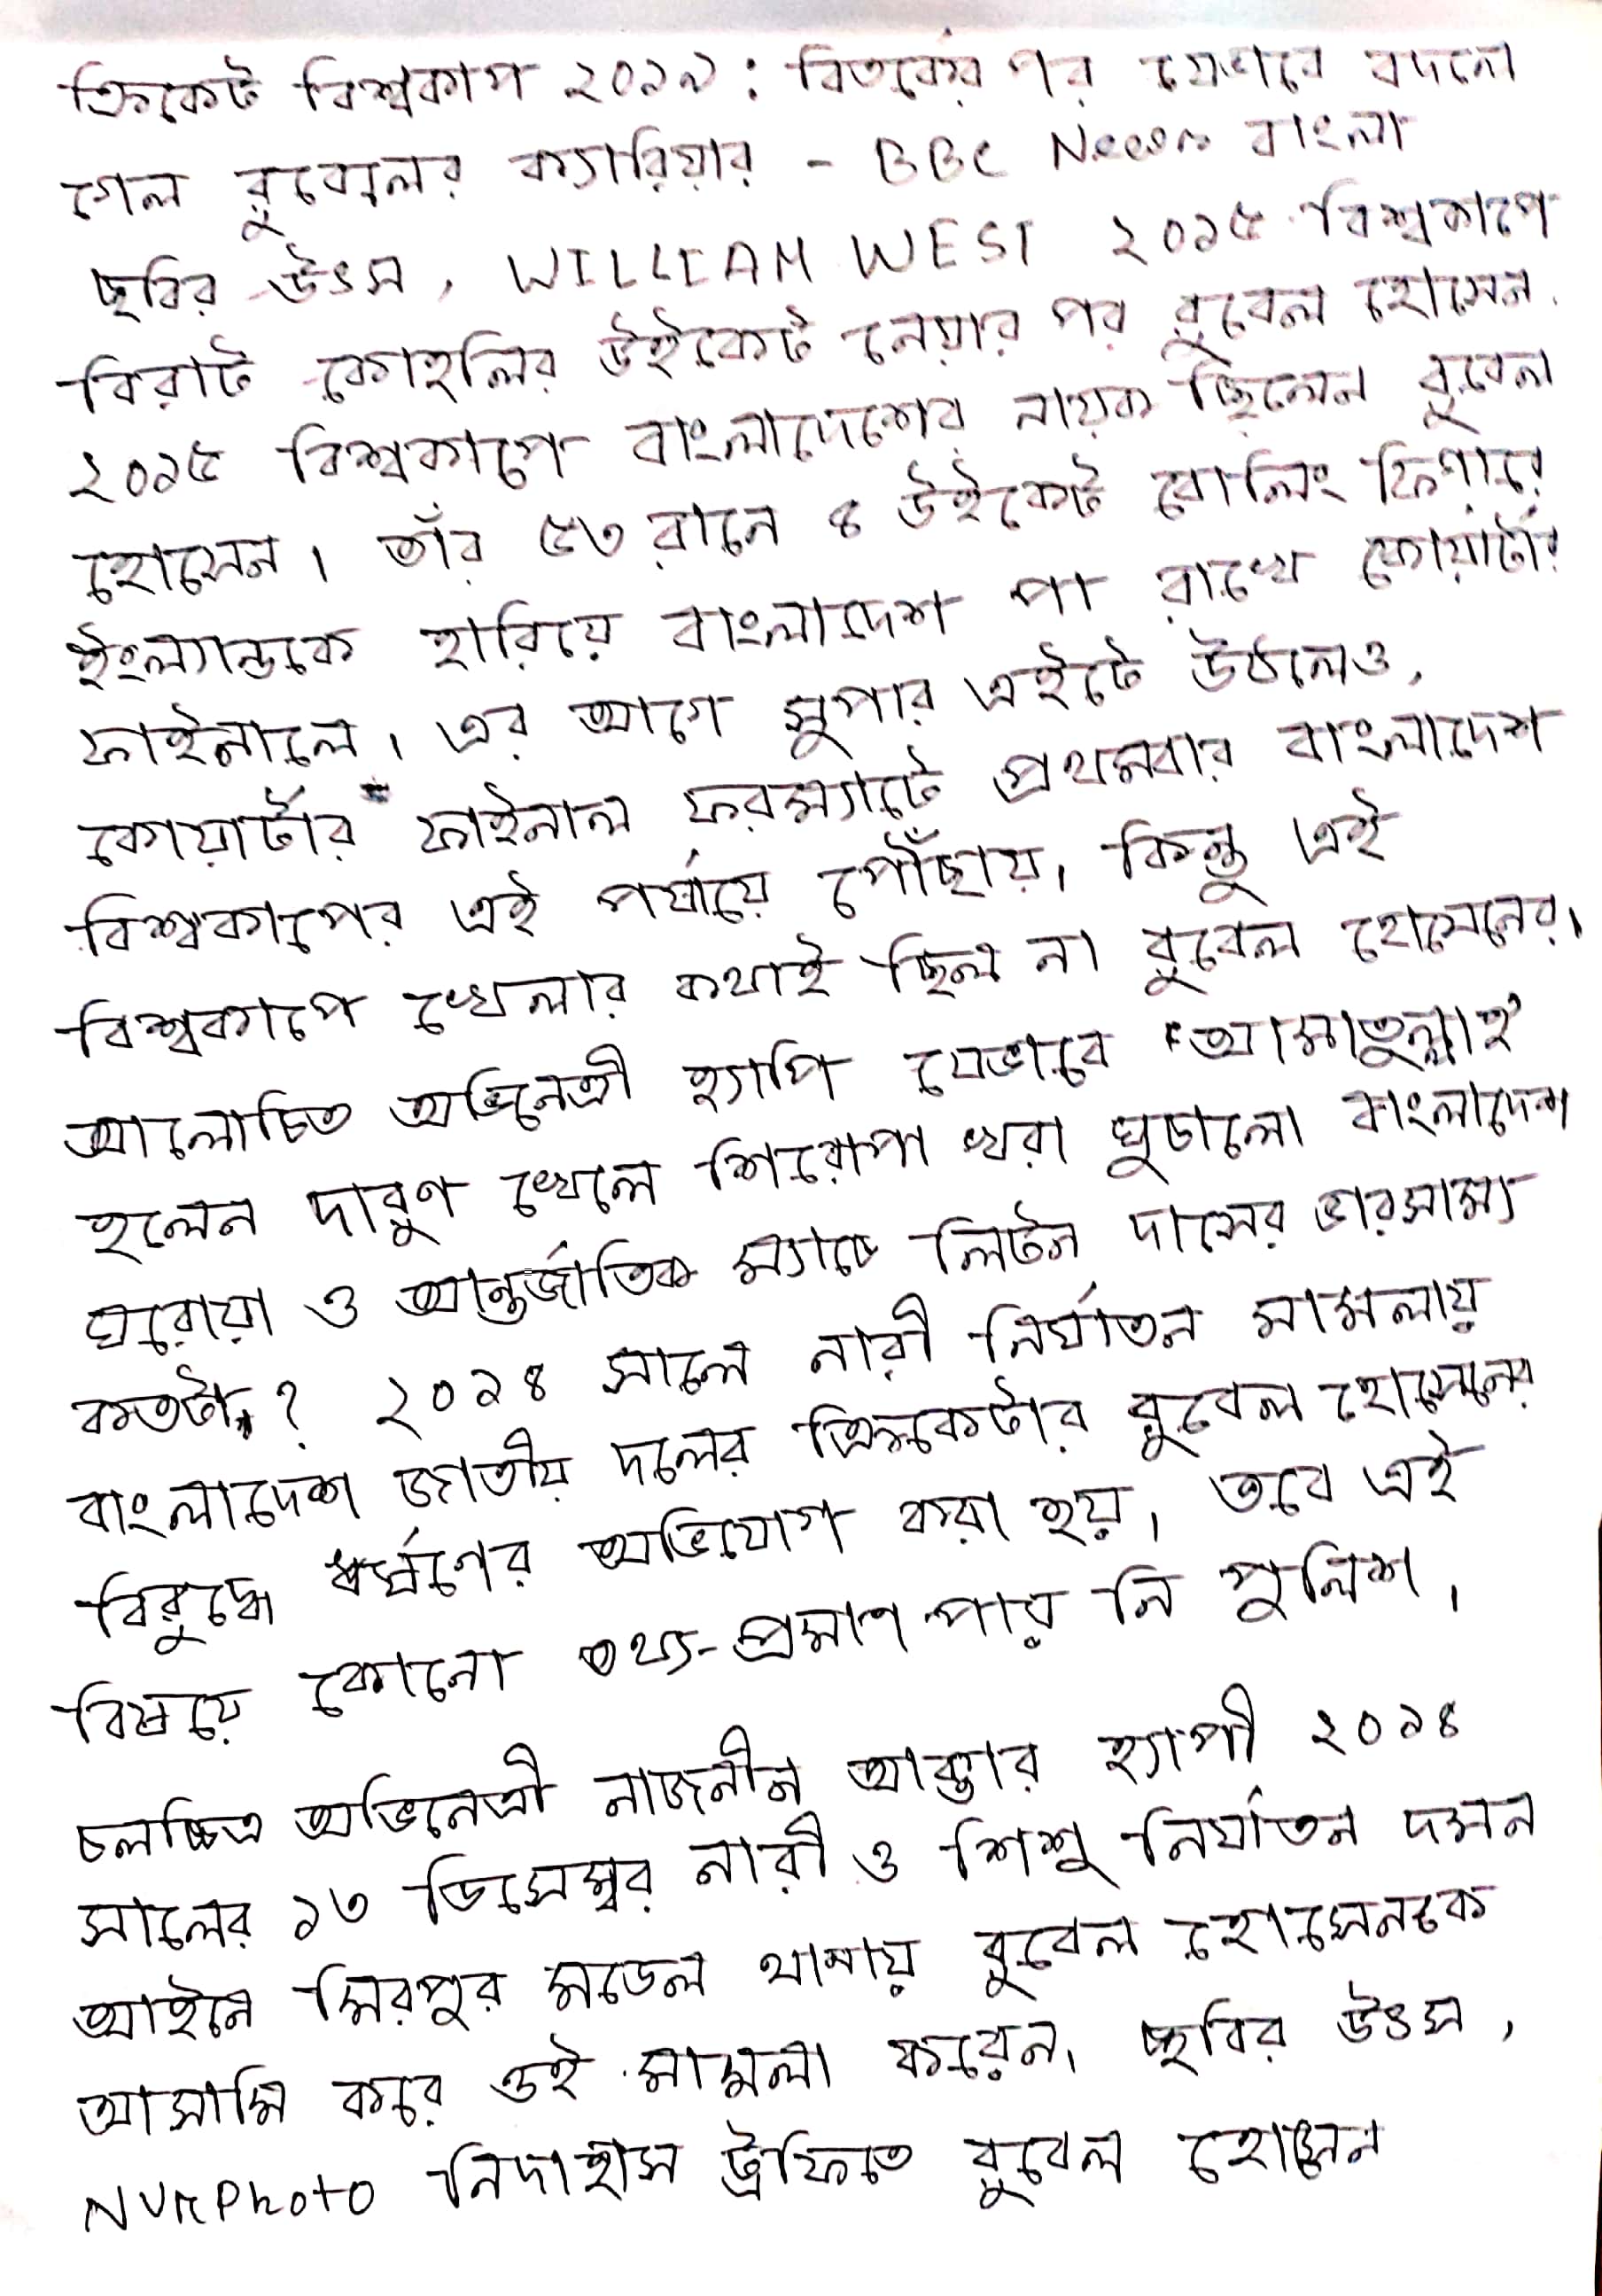 ক্রিকেট বিশ্বকাপ ২০১৯: বিতর্কের পর যেভাবে বদলে
গেল রুবেলের ক্যারিয়ার - BBC News বাংলা
ছবির উৎস, WILLIAM WEST ২০১৫ বিশ্বকাপে
বিরাট কোহলির উইকেট নেয়ার পর রুবেল হোসেন
২০১৫ বিশ্বকাপে বাংলাদেশের নায়ক ছিলেন রুবেল
হোসেন। তাঁর ৫৩ রানে ৪ উইকেট বোলিং ফিগারে
ইংল্যান্ডকে হারিয়ে বাংলাদেশ পা রাখে কোয়ার্টার
ফাইনালে। এর আগে সুপার এইটে উঠলেও,
কোয়ার্টার ফাইনাল ফরম্যাটে প্রথমবার বাংলাদেশ
বিশ্বকাপের এই পর্যায়ে পৌঁছায়। কিন্তু এই
বিশ্বকাপে খেলার কথাই ছিল না রুবেল হোসেনের।
আলোচিত অভিনেত্রী হ্যাপি যেভাবে 'আমাতুল্লাহ'
হলেন দারুণ খেলে শিরোপা খরা ঘুচালো বাংলাদেশ
ঘরোয়া ও আন্তর্জাতিক ম্যাচে লিটন দাসের ভারসাম্য
কতটা? ২০১৪ সালে নারী নির্যাতন মামলায়
বাংলাদেশ জাতীয় দলের ক্রিকেটার রুবেল হোসেনের
বিরুদ্ধে ধর্ষণের অভিযোগ করা হয়। তবে এই
বিষয়ে কোনো তথ্য-প্রমাণ পায় নি পুলিশ।
চলচ্চিত্র অভিনেত্রী নাজনীন আক্তার হ্যাপী ২০১৪
সালের ১৩ ডিসেম্বর নারী ও শিশু নির্যাতন দমন
আইনে মিরপুর মডেল থানায় রুবেল হোসেনকে
আসামি করে ওই মামলা করেন। ছবির উৎস,
NURPhoto নিদাহাস ট্রফিতে রুবেল হোসেন